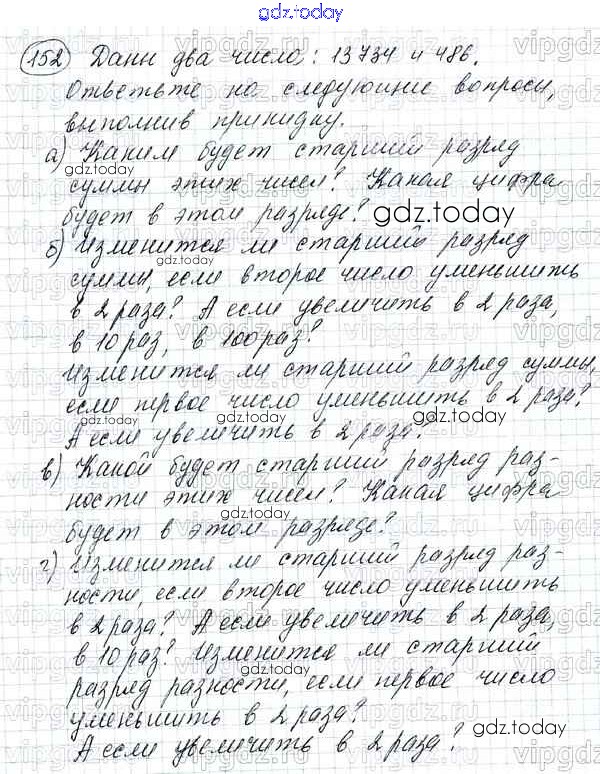 gdz.today
152 Даны два числа: 13734 и 486.
Ответьте на следующие вопросы,
выполнив прикидку.
а) Каким будет старший разряд
gdz.today
суммы этих чисел? Какая цифра
будет в этом разряде?
gdz.today
б) Изменится ли старший разряд
суммы, если второе число уменьшить
gdz.today
в 2 раза? А если увеличить в 2 раза,
в 10 раз, в 100 раз?
gdz.today
Изменится ли старший разряд суммы,
если первое число уменьшить в 2 раза?
gdz.today
А если увеличить в 2 раза?
gdz.today
в) Какой будет старший разряд раз-
ности этих чисел? Какая цифра
gdz.today
будет в этом разряде?
gdz.today
г) Изменится ли старший разряд раз-
ности, если второе число уменьшить
gdz.today
в 2 раза? А если увеличить в 2 раза,
в 10 раз? Изменится ли старший
gdz.today
разряд разности, если первое число
уменьшить в 2 раза?
gdz.today
А если увеличить в 2 раза?
gdz.today